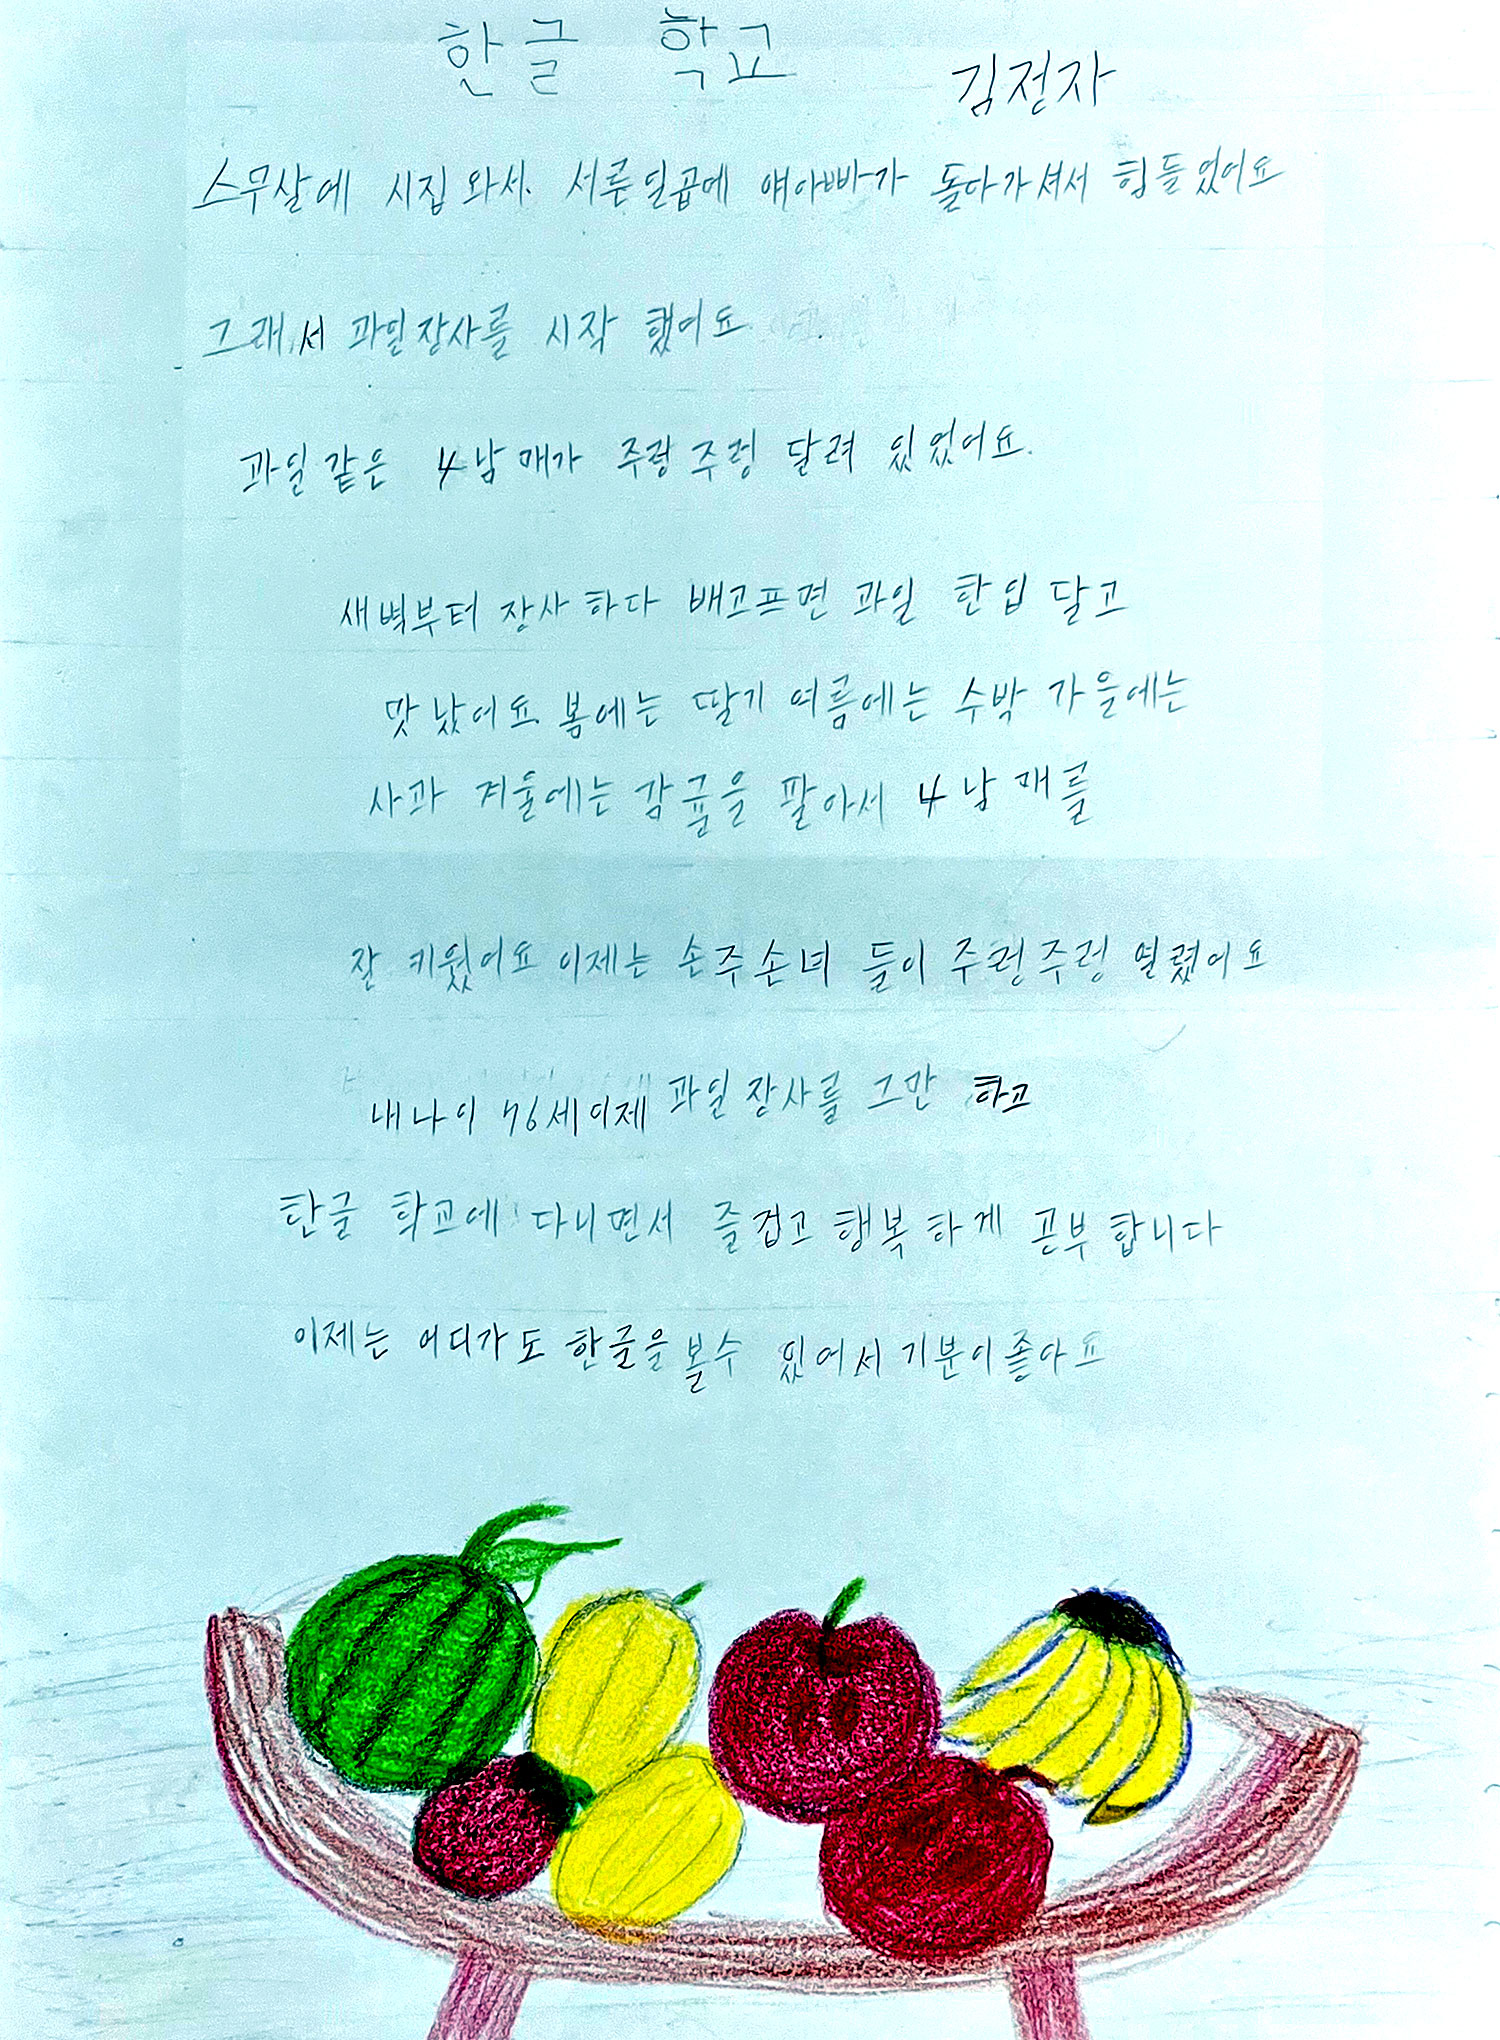 한글 학교
김정자
스무살에 시집 와서. 서른일곱에 얘아빠가 돌아가셔서 힘들었어요
그래서 과일장사를 시작 했어요
과일같은 4남매가 주렁주렁 달려 있었어요.
새벽부터 장사하다 배고프면 과일 한입 달고
맛났어요. 봄에는 딸기 여름에는 수박 가을에는
사과 겨울에는 감귤을 팔아서 4남매를
잘 키웠어요 이제는 손주손녀 들이 주렁주렁 열렸어요
내나이 76세이제 과일장사를 그만 하고
한글 학교에 다니면서 즐겁고 행복하게 공부합니다
이제는 어디가도 한글을 볼수 있어서 기분이좋아요